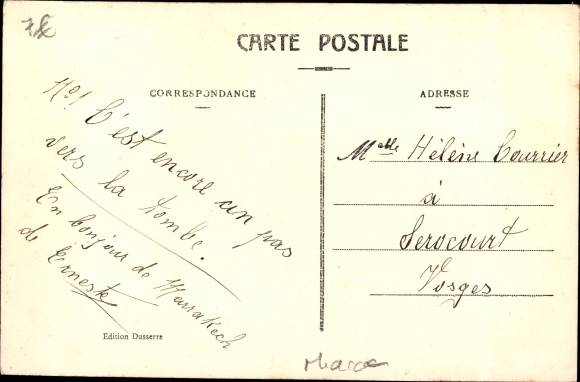 CARTE POSTALE
CORRESPONDANCE
No 1 C'est encore un pas
vers la tombe.
Un bonjour de Marrakech
de Ernest
Edition Dusserre
ADRESSE
Melle Hélène Courrier
à
Serocourt
Vosges
Maroc